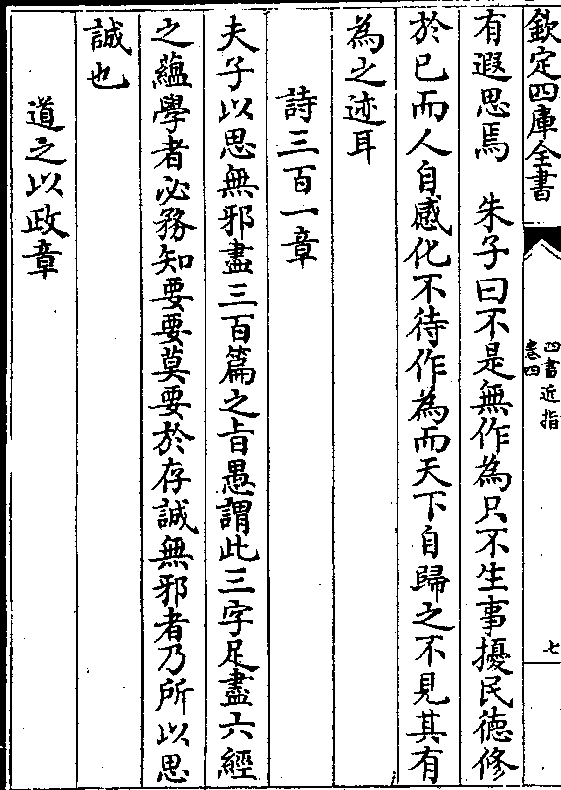 欽定四庫全書
四書近指
卷四
七
有遐思焉　朱子曰不是無作為只不生事擾民徳修
於已而人自感化不待作為而天下自歸之不見其有
為之迹耳
詩三百一章
夫子以思無邪盡三百篇之旨愚謂此三字足盡六經
之蘊學者必務知要要莫要於存誠無邪者乃所以思
誠也
道之以政章